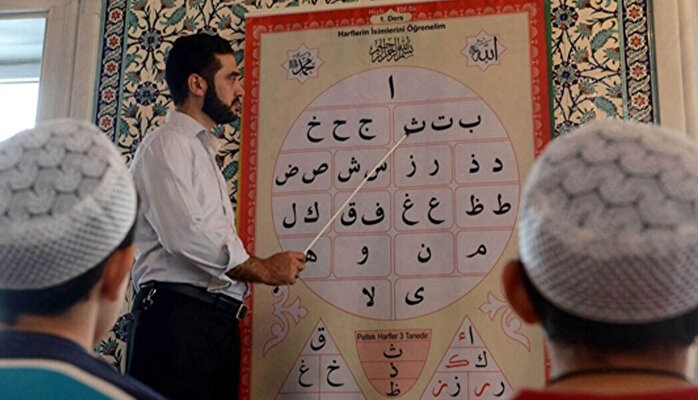 1. Ders
Harflerin İsimlerini Öğrenelim
الله بسم الله الرحمن الرحيم محمد
ا
ب ت ث ج ح خ
د ذ ر ز س ش ص ض
ط ظ ع غ ف ق ك ل
م ن و ه
لا ى
Peltek Harfler 3 Tanedir.
ث
ذ
ظ
ق
خ غ
ك